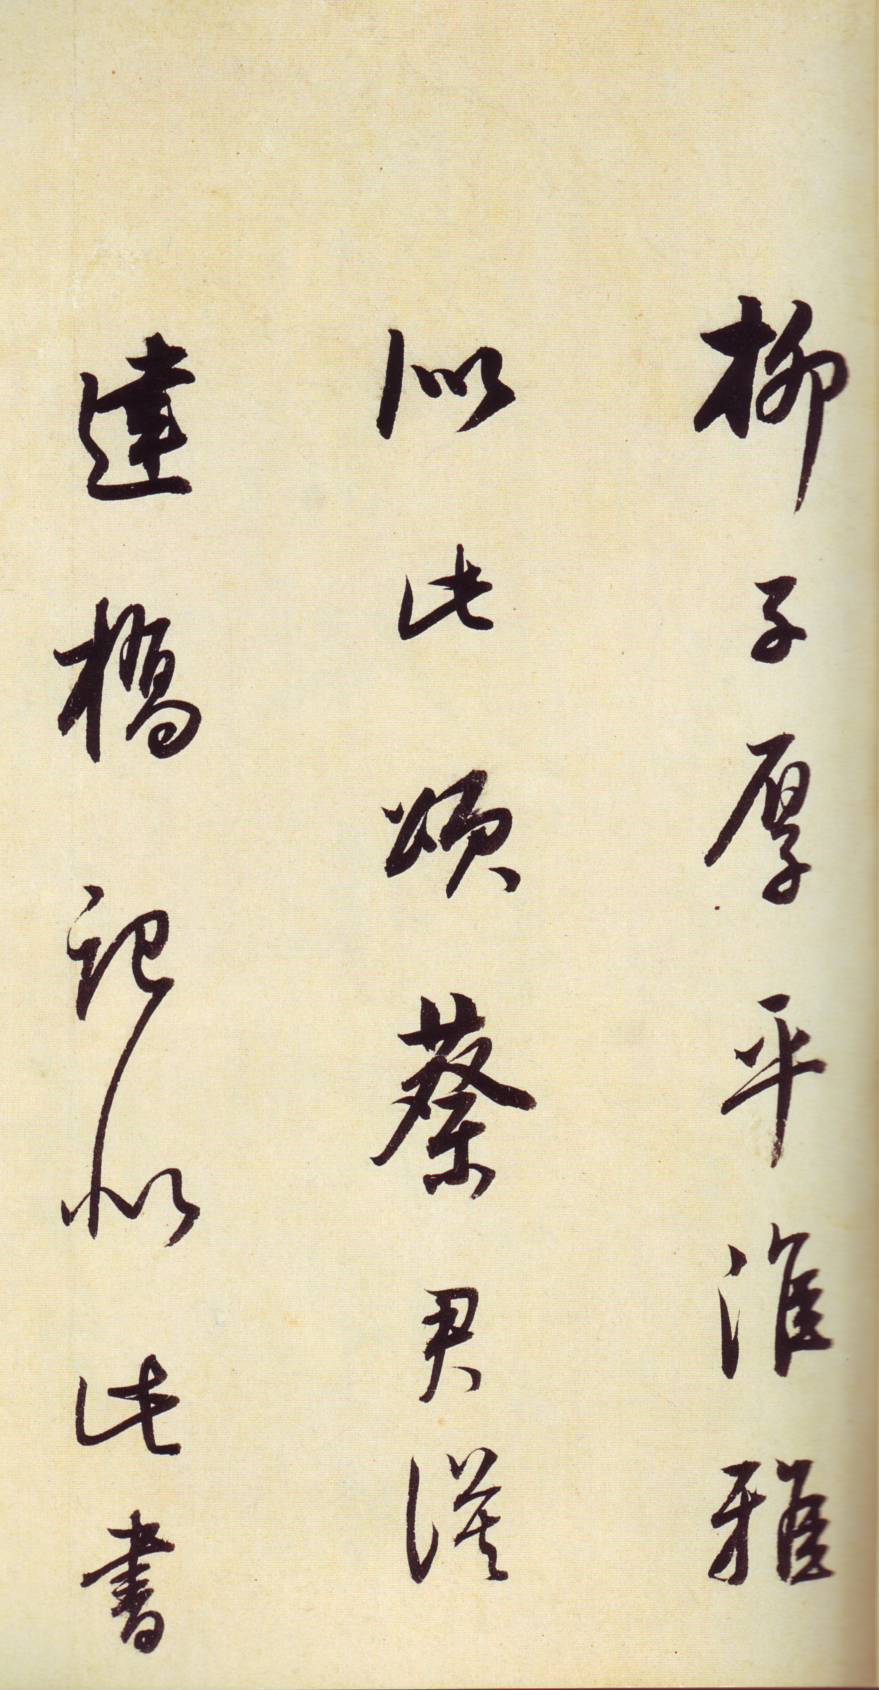 柳子厚平淮雅
似此頌蔡君謨
達橋記似此書